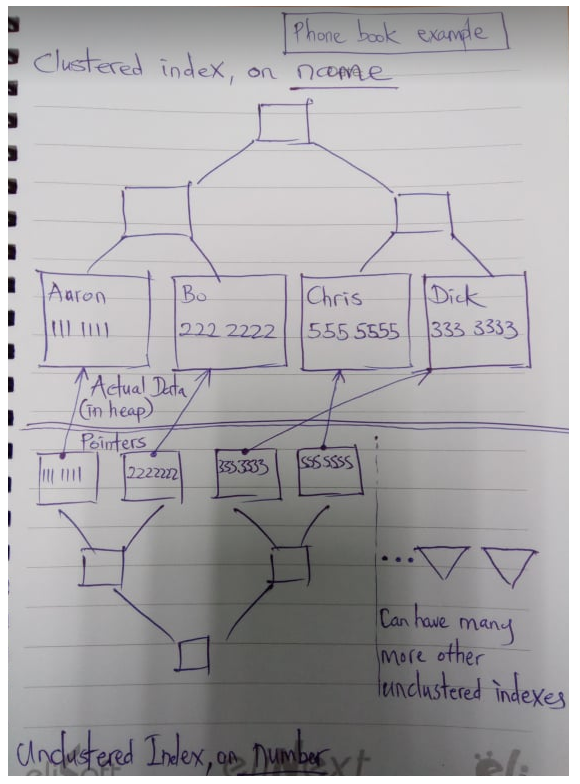 Phone book example
Clustered index, on name
Aaron
111 1111
Bo
222 2222
Chris
555 5555
Dick
333 3333
Actual Data
(in heap)
Pointers
111 1111
2222222
3333333
5555555
Can have many
more other
unclustered indexes
Unclustered Index, on Number